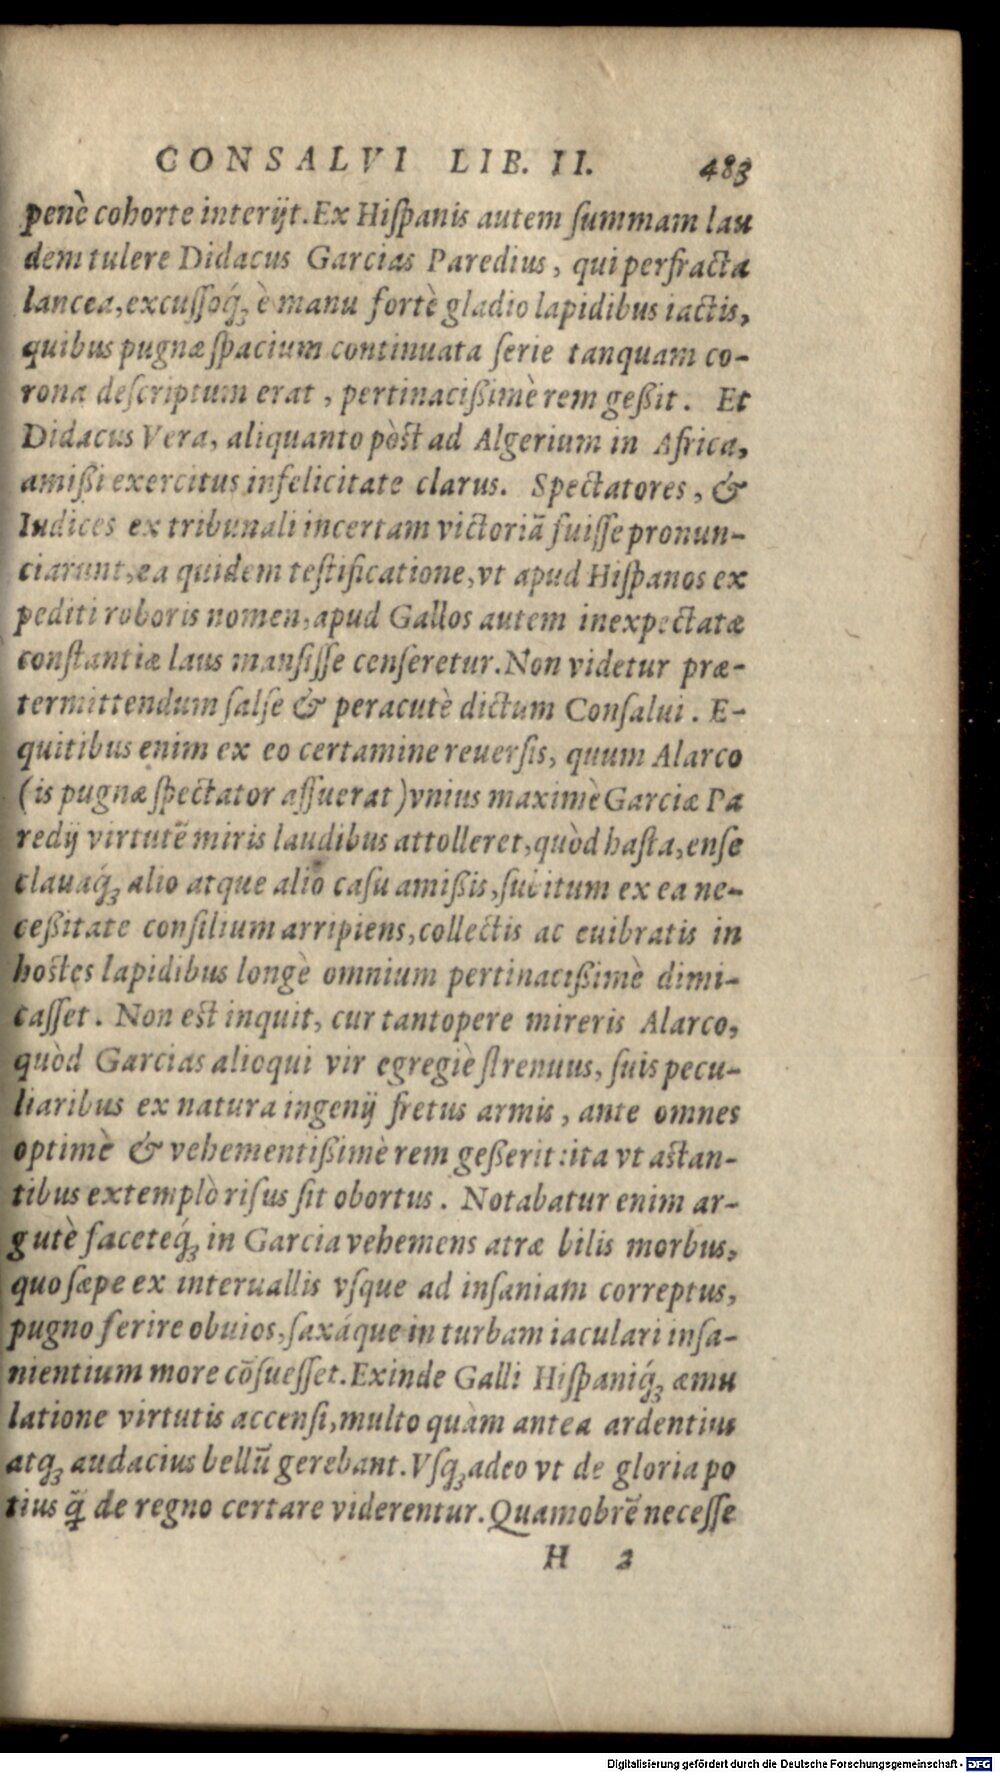 CONSALVI LIB. II. 483
penè cohorte interijt. Ex Hiſpanis autem ſummam lau
dem tulere Didacus Garcias Paredius, qui perfracta
lancea, excuſſoq́ꝫ è manu fortè gladio lapidibus iactis,
quibus pugnæ ſpacium continuata ſerie tanquam co-
rona deſcriptum erat, pertinacißimè rem geßit. Et
Didacus Vera, aliquanto pòst ad Algerium in Africa,
amißi exercitus infelicitate clarus. Spectatores, &
Iudices ex tribunali incertam victoriã fuiſſe pronun-
ciarunt, ea quidem teſtificatione, vt apud Hiſpanos ex
pediti roboris nomen, apud Gallos autem inexpectatæ
conſtantiæ laus manſiſſe cenſeretur. Non videtur præ-
termittendum ſalſe & peracutè dictum Conſalui. E-
quitibus enim ex eo certamine reuerſis, quum Alarco
(is pugnæ ſpectator aſſuerat) vnius maximè Garciæ Pa
redij virtutẽ miris laudibus attolleret, quòd haſta, enſe
clauaq́ꝫ alio atque alio caſu amißis, ſubitum ex ea ne-
ceßitate conſilium arripiens, collectis ac euibratis in
hostes lapidibus longè omnium pertinacißimè dimi-
caſſet. Non est inquit, cur tantopere mireris Alarco,
quòd Garcias alioqui vir egregiè ſtrenuus, ſuis pecu-
liaribus ex natura ingenij fretus armis, ante omnes
optimè & vehementißimè rem geßerit: ita vt astan-
tibus extemplò riſus ſit obortus. Notabatur enim ar-
gutè faceteq́ꝫ in Garcia vehemens atræ bilis morbus,
quo ſæpe ex interuallis vſque ad inſaniam correptus,
pugno ferire obuios, ſaxáque in turbam iaculari inſa-
nientium more cõſueſſet. Exinde Galli Hiſpaniq́ꝫ æmu
latione virtutis accenſi, multo quàm antea ardentius
atqꝫ audacius bellũ gerebant. Vſqꝫ adeo vt de gloria po
tius q̃ de regno certare viderentur. Quamobrẽ neceſſe
H 2
Digitalisierung gefördert durch die Deutsche Forschungsgemeinschaft - DFG